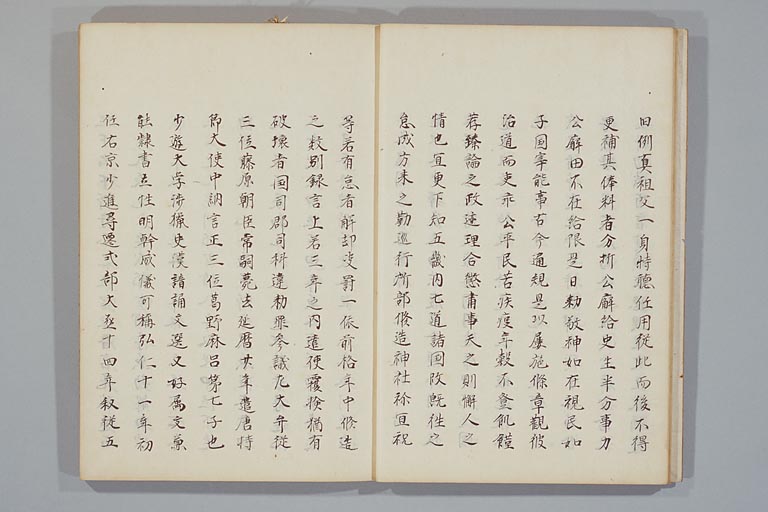 旧例真祖父一身特聴任用従此而後不得
更補其俸料者分折公廨給史生半分事力
公廨田不在給限是日勅敬神如在視民如
子国宰能事古今通規是以屡施條章觀彼
治道而吏乖公平民苦疾疫年穀不登飢饉
荐臻論之政迹理合懲粛事天之則懈人之
情也宜更下知五畿内七道諸国改既往之
怠成方来之勤巡行所部修造神社祢宜祝
等若有怠者解却决罰一依前格年中修造
之数別録言上若三年之内遣使覆検猶有
破壊者国司郡司科違勅罪参議九大弁従
三位藤原朝臣常嗣薨去延暦廿年遣唐持
節大使中納言正三位葛野麻呂第七子也
少遊大学渉猟史漢諳誦文選又好属文兼
能隷書立性明幹威儀可称弘仁十一年初
任右京少進尋遷式部大丞十四年叙従五